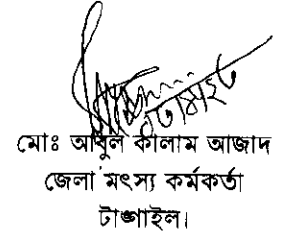 মোঃ আবুল কালাম আজাদ
জেলা মৎস্য কর্মকর্তা
টাঙ্গাইল।